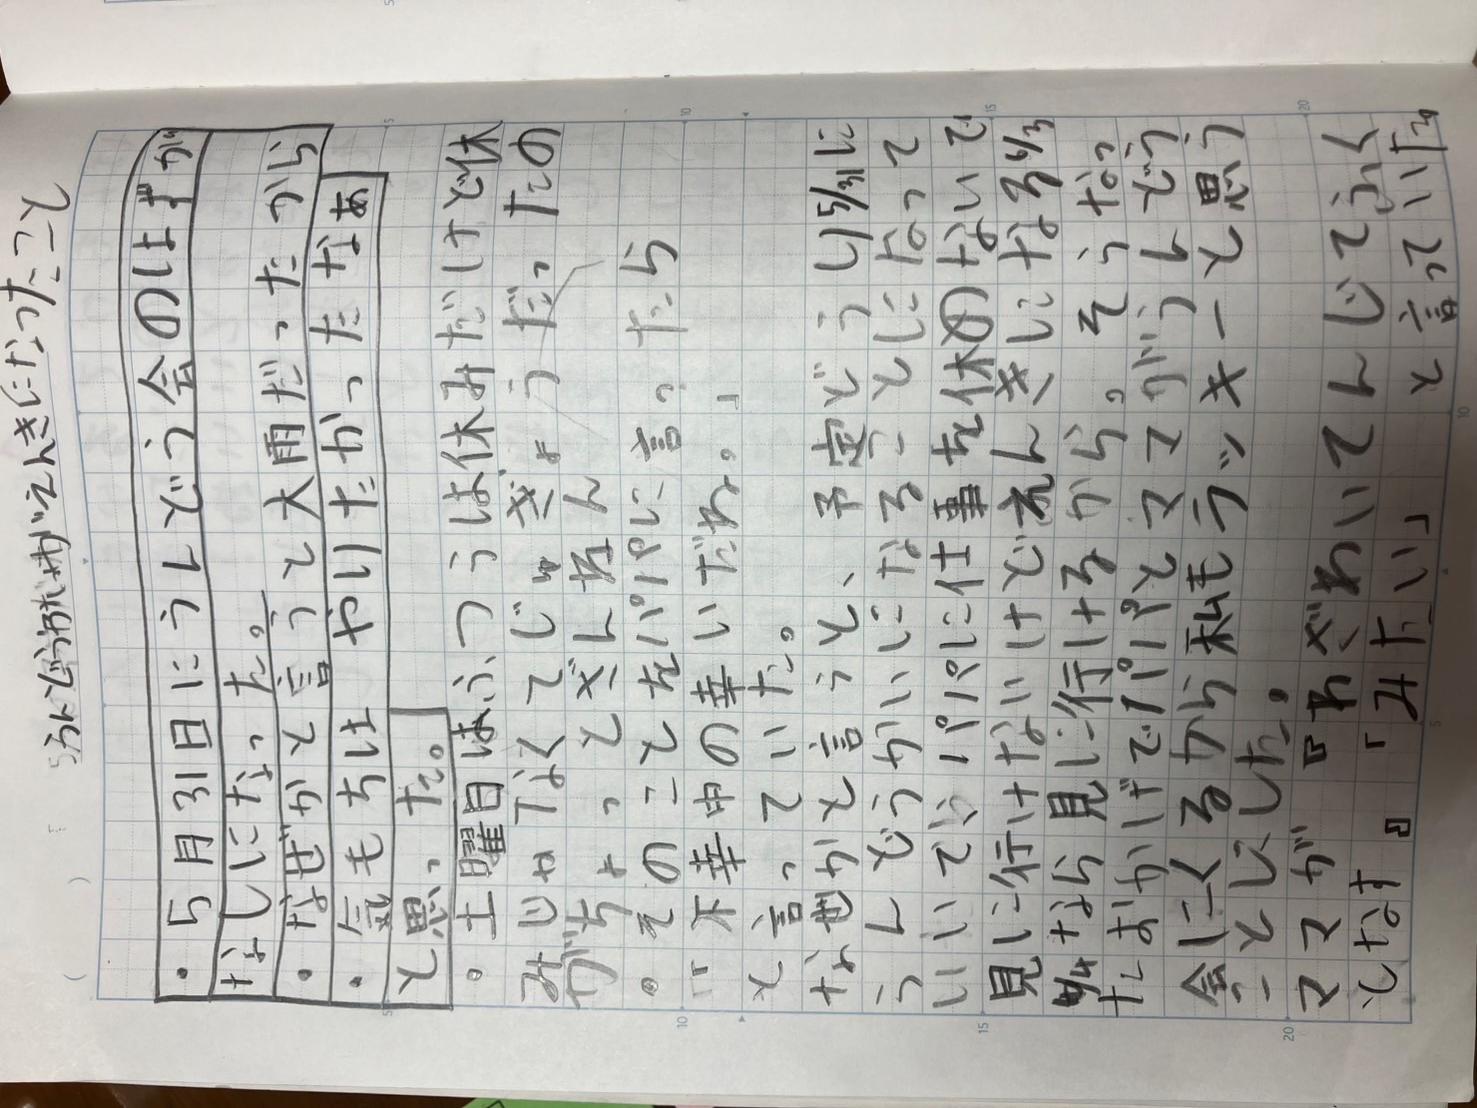 えんきになったこと
・5月31日にうんどう会のはずが
なしになった。
・なぜかと言うと大雨だったから
・気もちは やりたかったなあ
と思った。
・土曜日はふつうは休みだけど休
みじゃなくてじゅぎょうだったの
がちょっとざんねん
。そのことをパパに言ったら
「不幸中の幸いだね。」
と言っていた。
なぜかと言うと、予定どうり5/31に
うんどうかいになることになって
パパに仕事を休のないで
見に行けないけどえんきになる
なら見に行けるから。そうなっ
たおかげでパパとママがうんどう
会にくるから私もラッキーと思う
ことにした。
ママが『わざわいてんじてふく
となす』「みたい」と言っていた